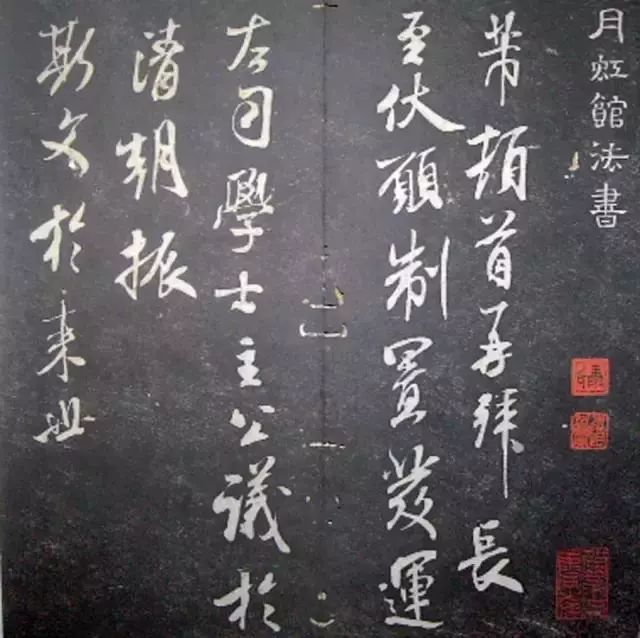 月虹館法書
芾頓首再拜長
至伏願制置發運
左司學士主公議於
清朝振
斯文於来世